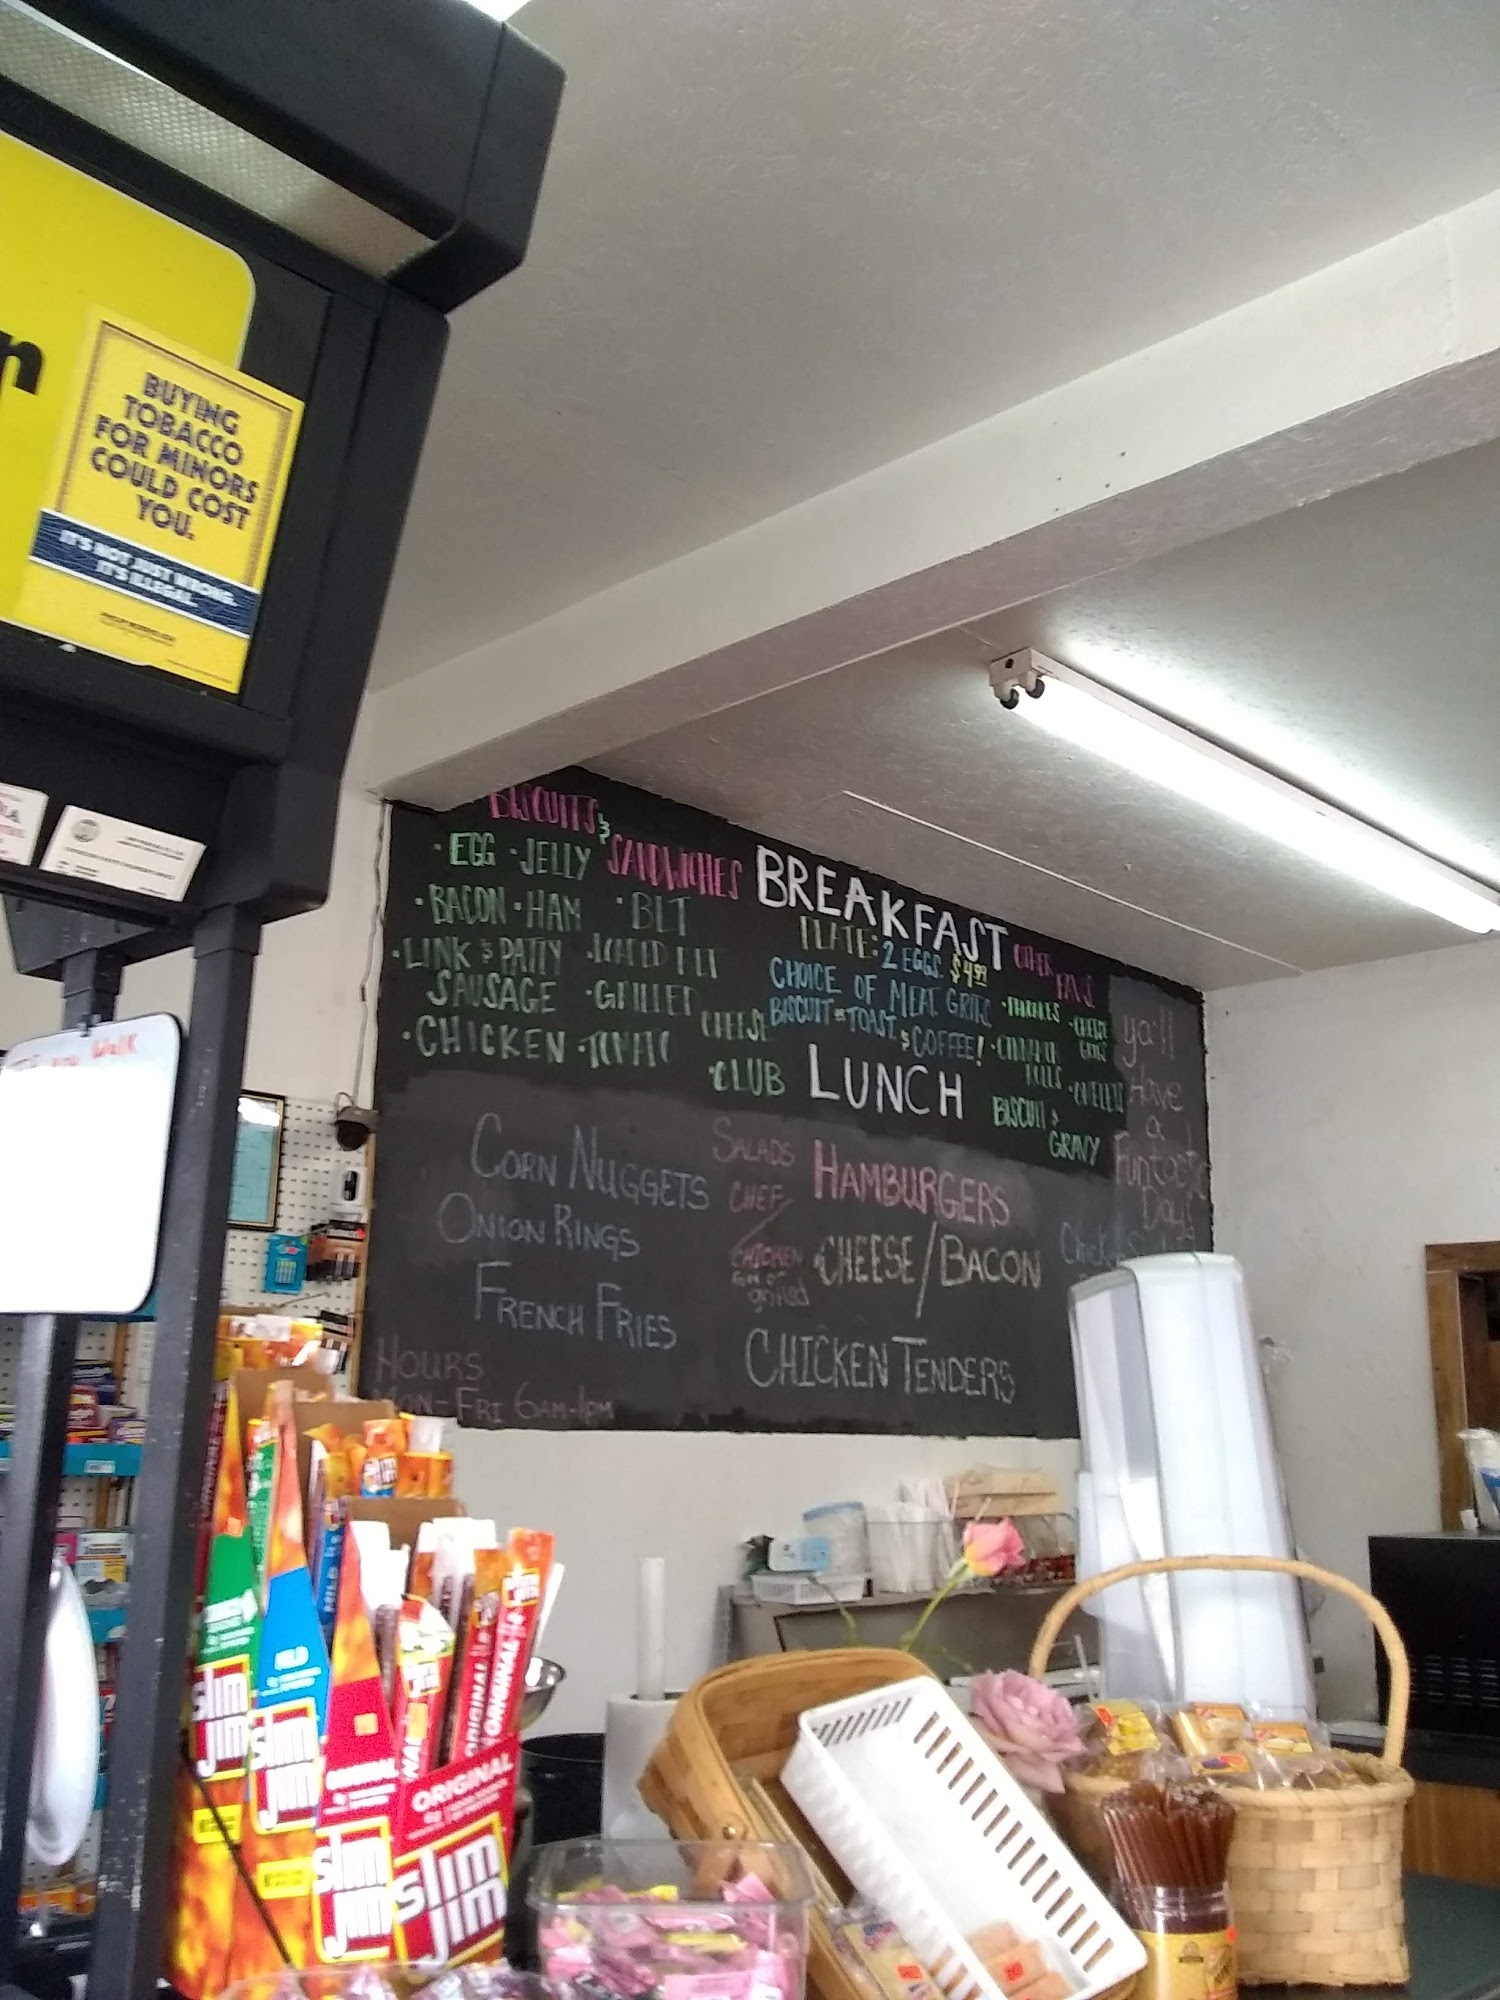 BUYING
TOBACCO
FOR MINORS
COULD COST
YOU.
IT'S NOT JUST WRONG.
IT'S ILLEGAL.
BISCUITS &
SANDWICHES
· EGG · JELLY
· BACON · HAM
· LINK & PATTY
SAUSAGE
· CHICKEN
· BLT
· LOADED BLT
· GRILLED
CHEESE
· TOMATO
· CLUB
BREAKFAST
PLATE: 2 EGGS. $4.99
CHOICE OF MEAT GRITS
BISCUIT OR TOAST. & COFFEE!
OTHER
FAVS
· CINNAMON
ROLLS
· OMELETS
BISCUIT &
GRAVY
ya'll
Have
a
Funtastic
Day!
LUNCH
CORN NUGGETS
ONION RINGS
FRENCH FRIES
SALADS
CHEF/
CHICKEN
grilled
HAMBURGERS
CHEESE/BACON
CHICKEN TENDERS
HOURS
MON-FRI 6AM-1PM
MILD
SLIM
JIM
SLIM
JIM
ORIGINAL
SLIM
JIM
ORIGINAL
SLIM
JIM
ORIGINAL
ORIGINAL